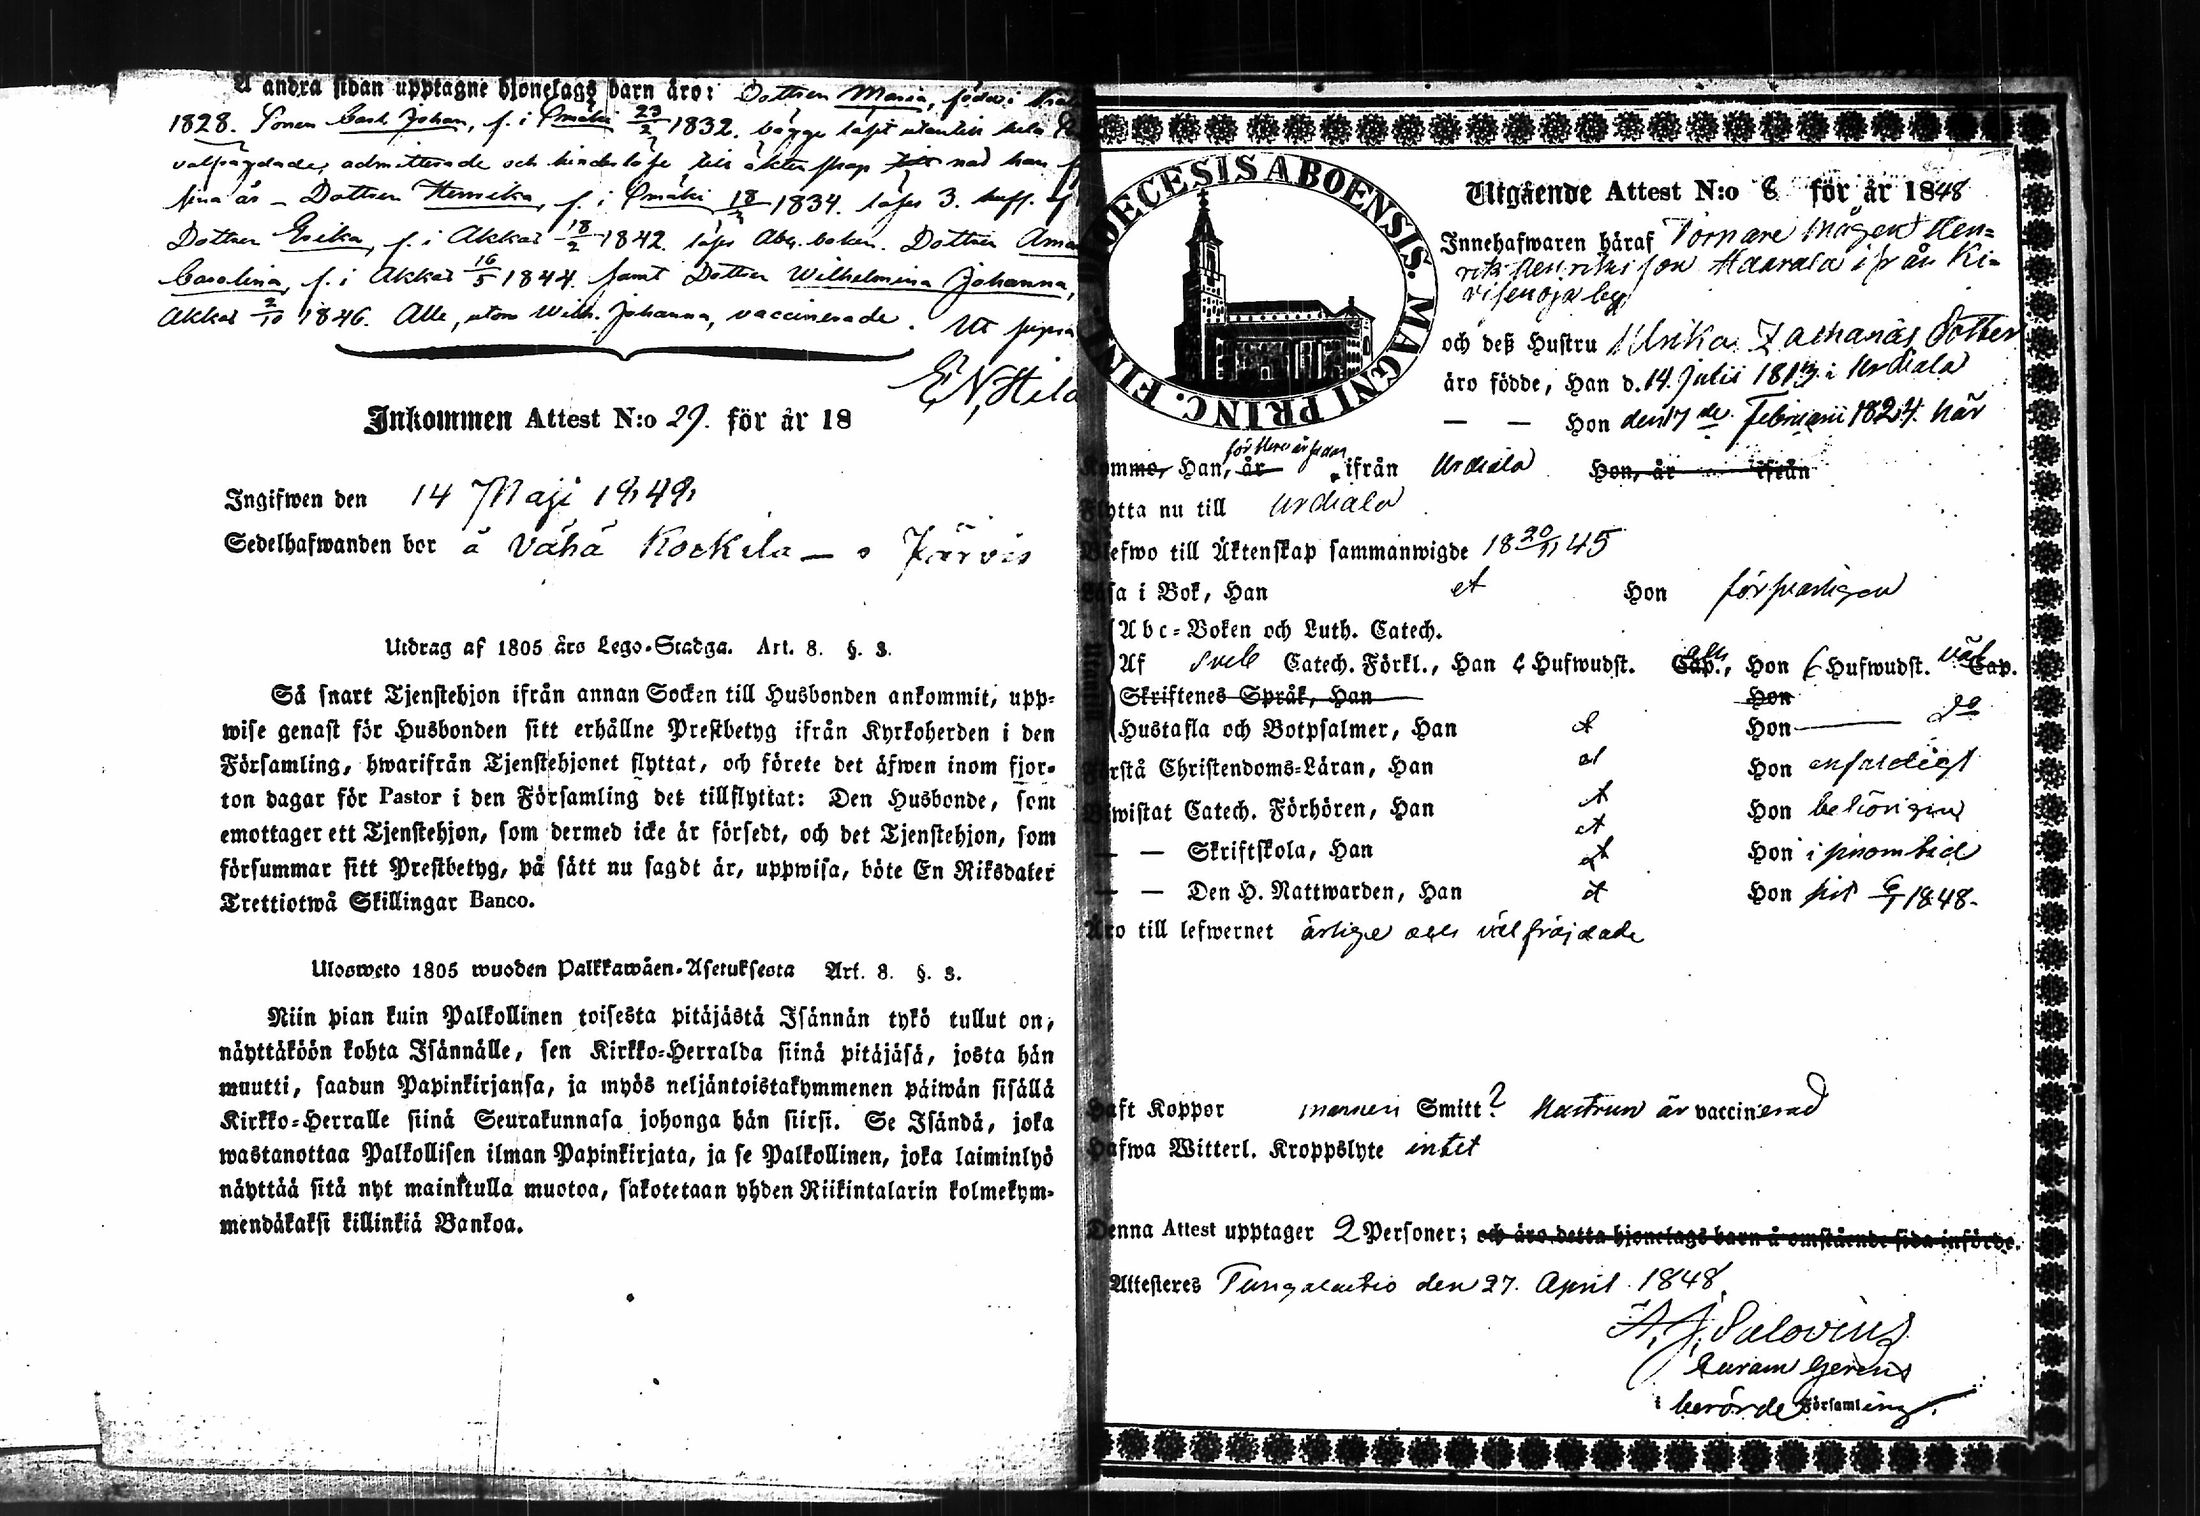 A andra sidan upptagne hjonelags barn äro: Dottren Maria, född i
1828. Sonen Carl Johan, f. i 23/2 1832. bägge läst utantill hela
välfrägdade, admitterade och hinderslöse till äktenskap
sina år – Dottren Henrika, f. i 18/3 1834. läser 3. huff. af
Dottren Erika, f. i Akkas 18/2 1842. läser Abc. boken. Dottren
Carolina, f. i Akkas 16/5 1844. samt Dottren Wilhelmina Johanna,
Akkas 2/10 1846. Alle, utom Wilh. Johanna, vaccinerade. Ut supra
Inkommen Attest N:o 29. för år 18
Ingifwen den 14 Maji 1848
Sedelhafwanden bor å Vähä Kockila – o Järvis
Utdrag af 1805 års Lego-Stadga. Art. 8. §. 3.
Så snart Tjenstehjon ifrån annan Socken till Husbonden ankommit, upp-
wise genast för Husbonden sitt erhållne Prestbetyg ifrån Kyrkoherden i den
Församling, hwarifrån Tjenstehjonet flyttat, och förete det äfwen inom fjor-
ton dagar för Pastor i den Församling det tillflyttat: Den Husbonde, som
emottager ett Tjenstehjon, som dermed icke är försedt, och det Tjenstehjon, som
försummar sitt Prestbetyg, på sätt nu sagdt är, uppwisa, böte En Riksdaler
Trettiotwå Skillingar Banco.
Ulosweto 1805 wuoden Palkkawäen-Asetuksesta Art. 8. §. 3.
Niin pian kuin Palkollinen toisesta pitäjästä Isännän tykö tullut on,
näyttäköön kohta Isännälle, sen Kirkko-Herralda siinä pitäjäsä, josta hän
muutti, saadun Papinkirjansa, ja myös neljäntoistakymmenen päiwän sisällä
Kirkko-Herralle siinä Seurakunnasa johonga hän siirsi. Se Isändä, joka
wastanottaa Palkollisen ilman Papinkirjata, ja se Palkollinen, joka laiminlyö
näyttää sitä nyt mainitulla muotoa, sakotetaan yhden Riikintalarin kolmekym-
mendäkaksi killinkiä Bankoa.
DIOECESIS ABOENSIS. MAGNI PRINC. FINL.
Utgående Attest N:o 8 för år 1848
Innehafwaren häraf Tornare mågen Hen-
rik Henriksson Haarala ifrån Ki-
och deß Hustru Ulrika Zachariæ Dotter
äro födde, Han d. 14. Julii 1813. i Urdiala
— — Hon den 17 de. Februarii 1824. här
Komme, Han, år för flere år sedan ifrån Urdiala Hon, år ifrån
Flytta nu till Urdiala
Blefwo till Äktenskap sammanwigde 18 30/11 45
Läsa i Bok, Han et Hon försvarligen
Abc-Boken och Luth. Catech.
Af Sveb Catech. Förkl., Han 6 Hufwudst. Cap., Hon 6 Hufwudst. väl Cap.
Skriftenes Språk, Han Hon
Hustafla och Botpsalmer, Han et Hon — do
Förstå Christendoms-Läran, Han et Hon enfaldigt
Biwistat Catech. Förhören, Han et Hon behörigen
— — Skriftskola, Han et Hon i sinom tid
— — Den H. Nattwarden, Han et Hon sist 6/1 1848.
Äro till lefwernet ärlige och väl fräjdade
Haft Koppor mannen Smitt? Hustrun är vaccinerad
Hafwa Witterl. Kroppslyte intet
Denna Attest upptager 2 Personer; och äro detta hjonelags barn å omstående sida införde.
Attesteres Pungalaitio den 27. April 1848.
A. J. Salovius
Curam Gerens
i berörde Församling.